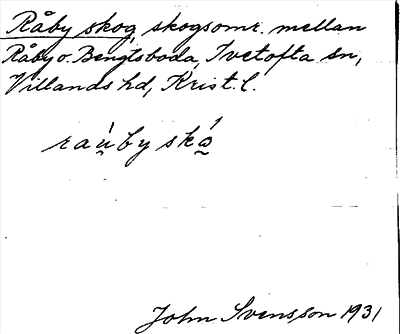 Råby skog, skogsomr. mellan
Råby o. Bengtsboda, Ivetofta sn,
Villands hd, Krist. l.
raúby skó
John Svensson 1931